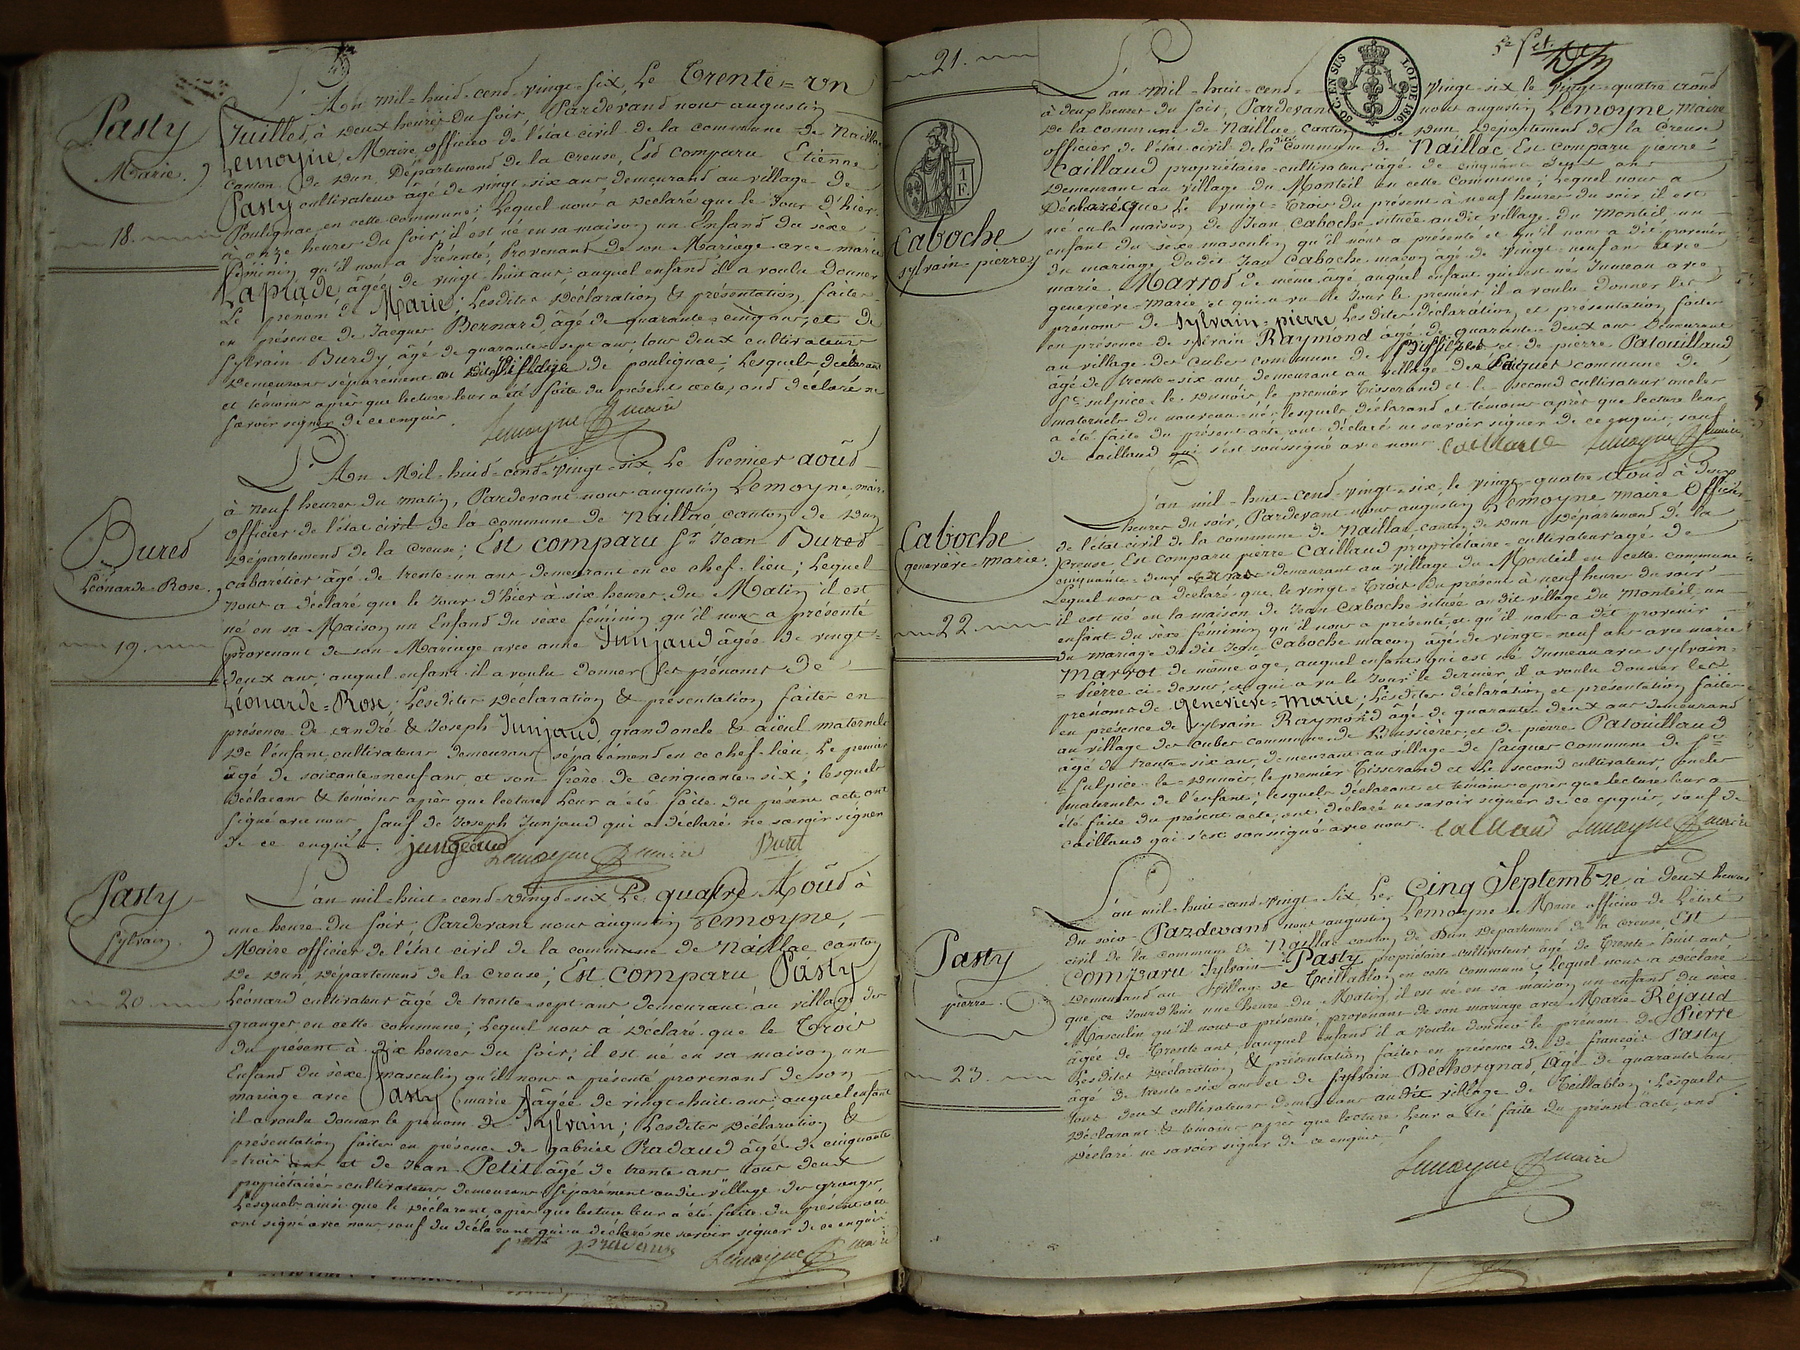 Pasty
Marie.
18.
L'An mil-huit-cent-vingt-six, Le Trente-un
Juillet, à deux heures du soir, Pardevant nous augustin
Lemoyne, Maire, officier de l'état civil de la commune de Naillac
Canton de Dun Département de la Creuse, Est comparu Etienne
Pasty cultivateur âgé de vingt-six ans demeurant au village de
Poulignac en cette commune; Lequel nous a déclaré que le Jour d'hier
à onze heures du soir il est né en sa maison un Enfant du sèxe
féminin qu'il nous a présenté, Provenant de son Mariage avec marie
Laprade âgée de vingt-huit ans, auquel enfant il a voulu donner
Le prenom de Marie; Lesdites Déclaration & présentation faites
en présence de Jacques Bernard, âgé de quarante-cinq ans, et de
Sylvain Burdy âgé de quarante-sept ans, tous deux cultivateurs
Demeurans séparément au dit village de poulignac; Lesquels déclarant
et témoins après que lecture leur a été faite du présent acte, ont déclaré ne
savoir signer de ce enquis.
Lemoyne maire
Buret
Léonarde-Rose.
19.
L'An Mil-huit-cent-vingt-six, Le Premier août
à Neuf heures du matin, Pardevant nous augustin Lemoyne, maire
officier de l'état civil de la commune de Naillac, canton de Dun
Département de la Creuse; Est comparu Sr. Jean Buret
cabarétier âgé de trente-un ans demeurant en ce chef-lieu; Lequel
nous a déclaré que le Jour d'hier à six heures du Matin il est
né en sa Maison un Enfant du sèxe féminin qu'il nous a présenté
provenant de son Mariage avec anne Junjaud âgée de vingt-
deux ans, auquel enfant il a voulu donner les prénoms de
Léonarde-Rose; Lesdites Déclaration & présentation faites en
présence de andré & Joseph Junjaud, grand oncle & aïeul maternels
De l'enfant, cultivateurs demeurans séparément en ce chef-lieu, Le premier
âgé de soixante-neuf ans, et son frère de cinquante-six; lesquels
Déclarans & témoins après que lecture Leur a été faite du présent acte, ont
signé avec nous sauf de Joseph Junjaud qui a déclaré ne savoir signer
de ce enquis. jungeaud Lemoyne maire Buret
Pasty
Sylvain.
20.
L'an mil-huit-cent-vingt-six Le quatre Août à
une heure du soir, Pardevant nous augustin Lemoyne,
Maire officier de l'état civil de la commune de Naillac, canton
De Dun, Département de la Creuse; Est comparu Pasty
Léonard cultivateur âgé de trente-sept ans demeurant au village des
granges en cette commune; Lequel nous a Déclaré que le Trois
du présent à dix heures du soir, il est né en sa maison un
Enfant du sèxe masculin qu'il nous a présenté provenant de son
mariage avec Pasty (marie) âgée de vingt-huit ans, auquel enfant
il a voulu donner le prénom de Sylvain; Lesdites déclaration &
présentation faites en présence de gabriel Pradaud âgé de cinquante
-trois ans et de Jean Petit âgé de trente ans tous deux
propriétaires-cultivateurs demeurans séparément audit village des granges
Lesquels ainsi que le Déclarant après que lecture leur a été faite du présent acte
ont signé avec nous sauf du déclarant qui a déclaré ne savoir signer de ce enquis
petit pradaud Lemoyne maire
21.
5e. fet.
60 C. EN SUS
LOI DE 1816
1 F.
Caboche
sylvain-pierre
L'an Mil-huit-cent-vingt-six le vingt-quatre août
à deux heures du soir, Pardevant nous augustin Lemoyne maire
De la commune de Naillac canton de Dun, Département de la Creuse
officier de l'état civil de la dite commune de Naillac, Est comparu pierre
Caillaud propriétaire-cultivateur âgé de cinquante deux ans
Demeurant au village du Monteil en cette commune; Lequel nous a
Déclaré que Le vingt-trois du présent à neuf heures du soir il est
né en la maison de Jean Caboche située audit village du Monteil un
enfant du sexe masculin qu'il nous a présenté et qu'il nous a dit provenir
du mariage dudit Jean Caboche maçon âgé de vingt-neuf ans avec
marie Marrot de même âge, auquel enfant qui est né Jumeau avec
geneviève-marie et qui a vu le Jour le premier, il a voulu donner les
prénoms de Sylvain-pierre Lesdites déclaration et présentation faites
en présence de sylvain Raymond âgé de quarante-deux ans Demeurant
au village des cubes commune de Bussière et de pierre Patouillaud
âgé de trente-six ans, demeurant au village de Jacques commune de
St. sulpice-le-Dunois, le premier Tisserand et le second cultivateur oncles
maternels du nouveau-né; lesquels déclarant et témoins après que lecture leur
a été faite du présent acte ont déclaré ne savoir signer de ce enquis, sauf
de caillaud qui s'est soussigné avec nous Caillaud Lemoyne maire
Caboche
geneviève-marie.
22.
L'an mil-huit-cent-vingt-six, le vingt-quatre août à deux
heures du soir, Pardevant nous augustin Lemoyne maire officier
de l'état civil de la commune de Naillac, canton de Dun Département de la
Creuse, Est comparu pierre Caillaud propriétaire-cultivateur âgé de
cinquante-deux ans demeurant au village du Monteil en cette commune
Lequel nous a déclaré que le vingt-trois du présent à neuf heures du soir
il est né en la maison de Jean Caboche située audit village du Monteil un
enfant du sexe féminin qu'il nous a présenté, et qu'il nous a dit provenir
du mariage dudit Jean Caboche maçon âgé de vingt-neuf ans avec marie
Marrot de même âge, auquel enfant qui est né Jumeau avec sylvain-
=Pierre ci-dessus, et qui a vu le Jour le dernier, il a voulu donner les
prénoms de geneviève-Marie; Lesdites déclaration et présentation faites
en présence de sylvain Raymond âgé de quarante-deux ans demeurant
au village des cubes commune de Bussière, et de pierre Patouillaud
âgé de trente-six ans, demeurant au village de Jacques commune de St.
Sulpice-le-Dunois, le premier Tisserand et Le second cultivateur, oncles
maternels de l'enfant; lesquels déclarant et témoins après que lecture leur a
été faite du présent acte, ont déclaré ne savoir signer de ce enquis, sauf de
caillaud qui s'est soussigné avec nous. Caillaud Lemoyne maire
Pasty
pierre.
23.
L'an mil-huit-cent-vingt-six Le Cinq Septembre, à Deux heures
du soir Pardevant nous augustin Lemoyne Maire officier de L'état
civil de la commune de Naillac canton de Dun Département de la Creuse, Est
Comparu Sylvain Pasty propriétaire-cultivateur âgé de Trente-huit ans
Demeurant au village de Teillablou en cette commune; Lequel nous a Déclaré
que ce Jourd'hui une heure du Matin, il est né en sa maison un enfant du sèxe
Masculin qu'il nous a présenté, provenant de son mariage avec Marie Réjaud
âgée de Trente ans, auquel enfant il a voulu donner le prénom de Pierre
Lesdites Déclaration & présentation faites en présence de françois Pasty
âgé de trente-six ans et de Sylvain Déchorgnat, âgé de quarante ans
Tous deux cultivateurs demeurans audit village de Teillablou; Lesquels
Déclarant & témoins après que lecture Leur a été faite du présent acte, ont
Déclaré ne savoir signer de ce enquis.
Lemoyne maire